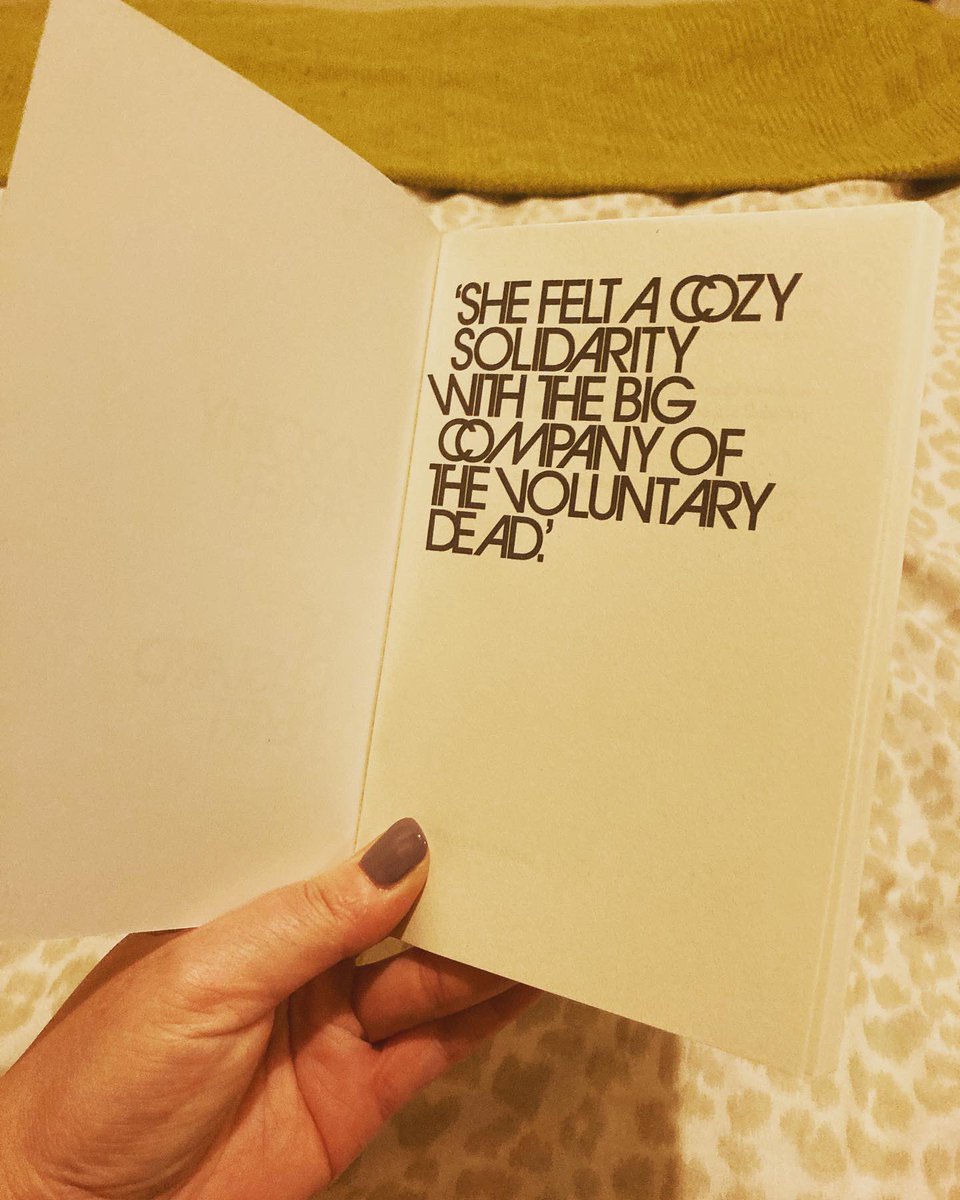 ‘SHE FELT A COZY
SOLIDARITY
WITH THE BIG
COMPANY OF
THE VOLUNTARY
DEAD.’